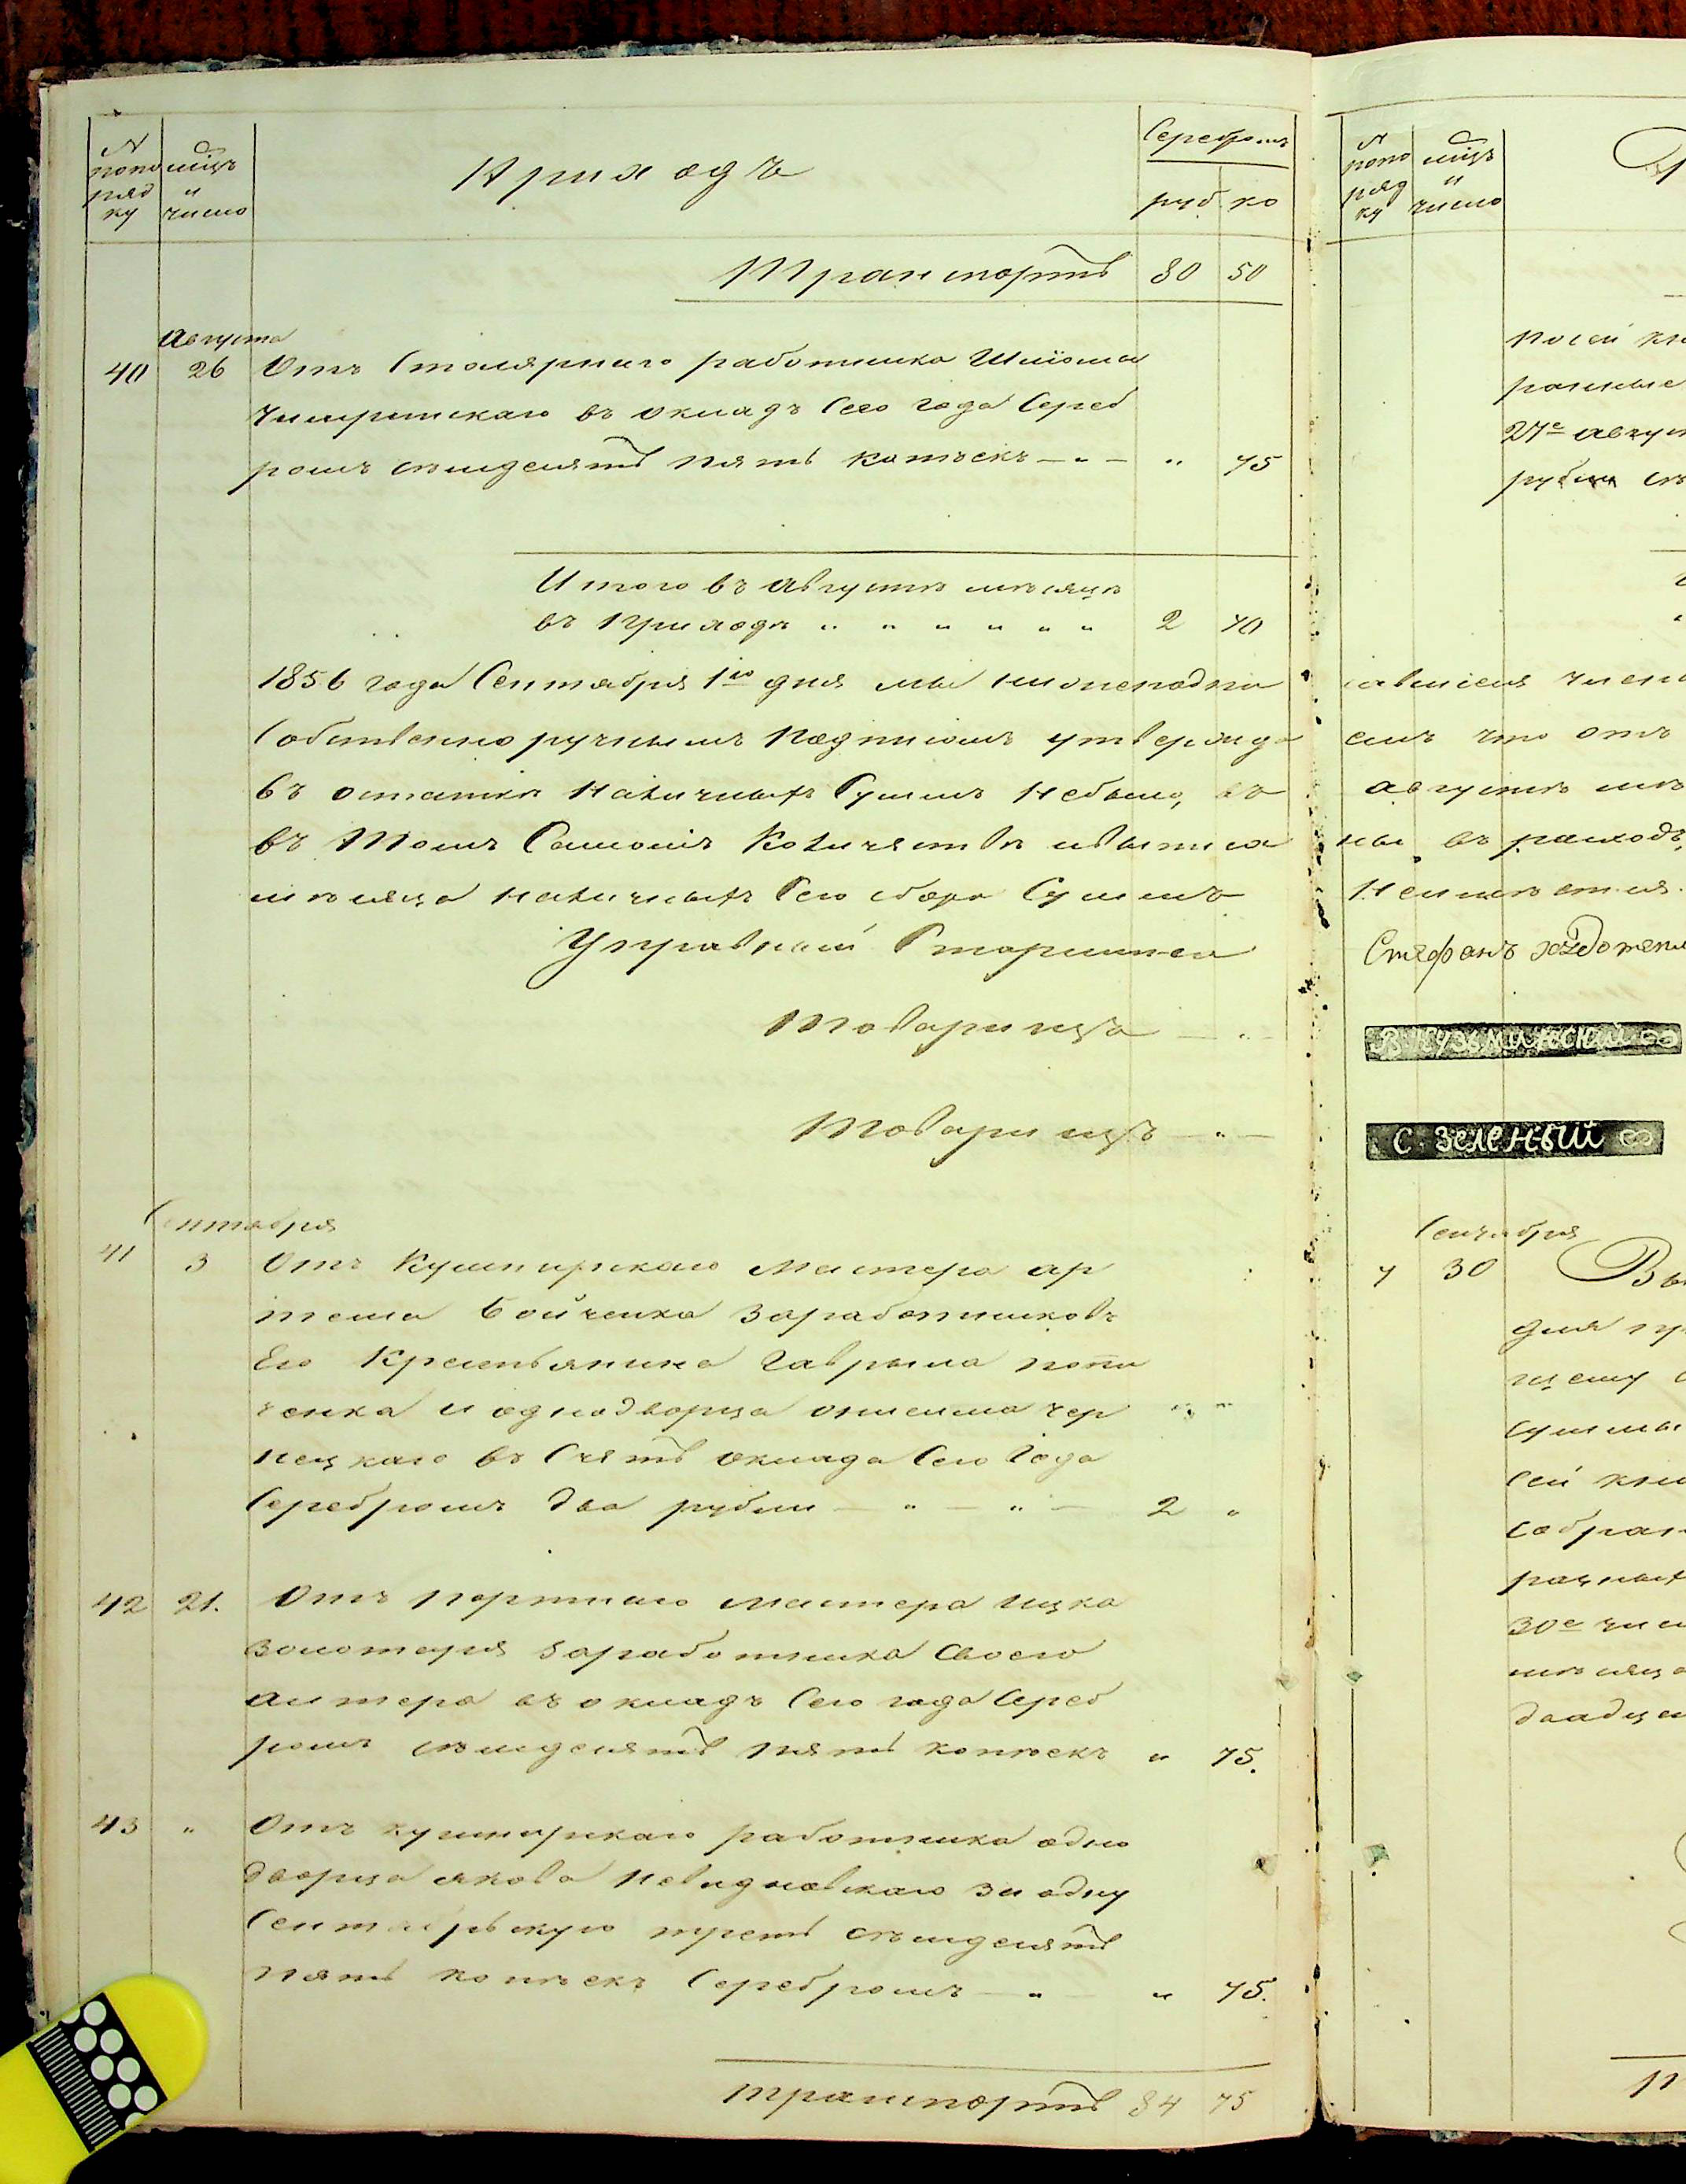 № попо ряд ку
мѣсяцъ и число
Приходъ
Серебромъ
руб. ко
Транспортъ 80 50
Августа
40 26 Отъ Столярнаго работника
въ окладъ Сего года Сереб
ромъ семдесятъ пять копѣекъ — „ — „ 75
Итого въ Августѣ мѣсяцѣ
въ Приходѣ „ „ „ „ „ „ 2 70
1856 года Сентября 1го дня мы нижеподпи
Собственно ручнымъ Подписомъ утвержда
въ остаткѣ Наличныхъ Суммъ Небыло, въ
въ Томъ Самомъ Количествѣ и выписа
мѣсяца наличныхъ Сего сбора Суммъ
Управный Старшина
Товарища — „ —
Товарищъ — „ —
Сентября
41 3 Отъ Кушнирскаго Мастера ар
тема Бойченка заработниковъ
Его Крестьянина Гаврыла
ченка и однодворца онисима чер
нецкаго въ Счетъ оклада Сего Года
Серебромъ два рубли — „ — „ — 2 „
42 21. Отъ Портнаго Мастера Ицка
Золотаря заработника Своего
въ окладъ Сего года Сереб
ромъ семдесятъ пять копѣекъ „ 75.
43 „ Отъ кушнирскаго работника одно
дворца якова за одну
Сентябрьскую треть семдесятъ
пять копѣекъ Серебромъ — „ „ 75.
транспортъ 84 75
№ попо ряд ку
мѣсяцъ и число
27е август
рубли
савшіеся
емъ что отъ
августѣ мѣ
ны въ расходъ,
Неимѣется.
Стефанъ
В КУЗЬМИНСКИЙ
С ЗЕЛЕНЫЙ
Сентября
7 30
для
щему
суммы
сей кни
собран
30е чис
мѣсяца
двадцеть